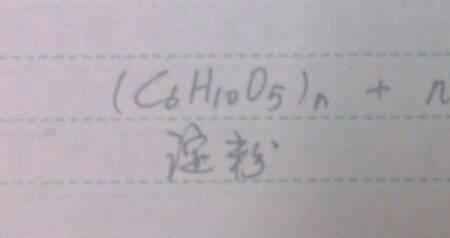 (C₆H₁₀O₅)ₙ + n
淀粉